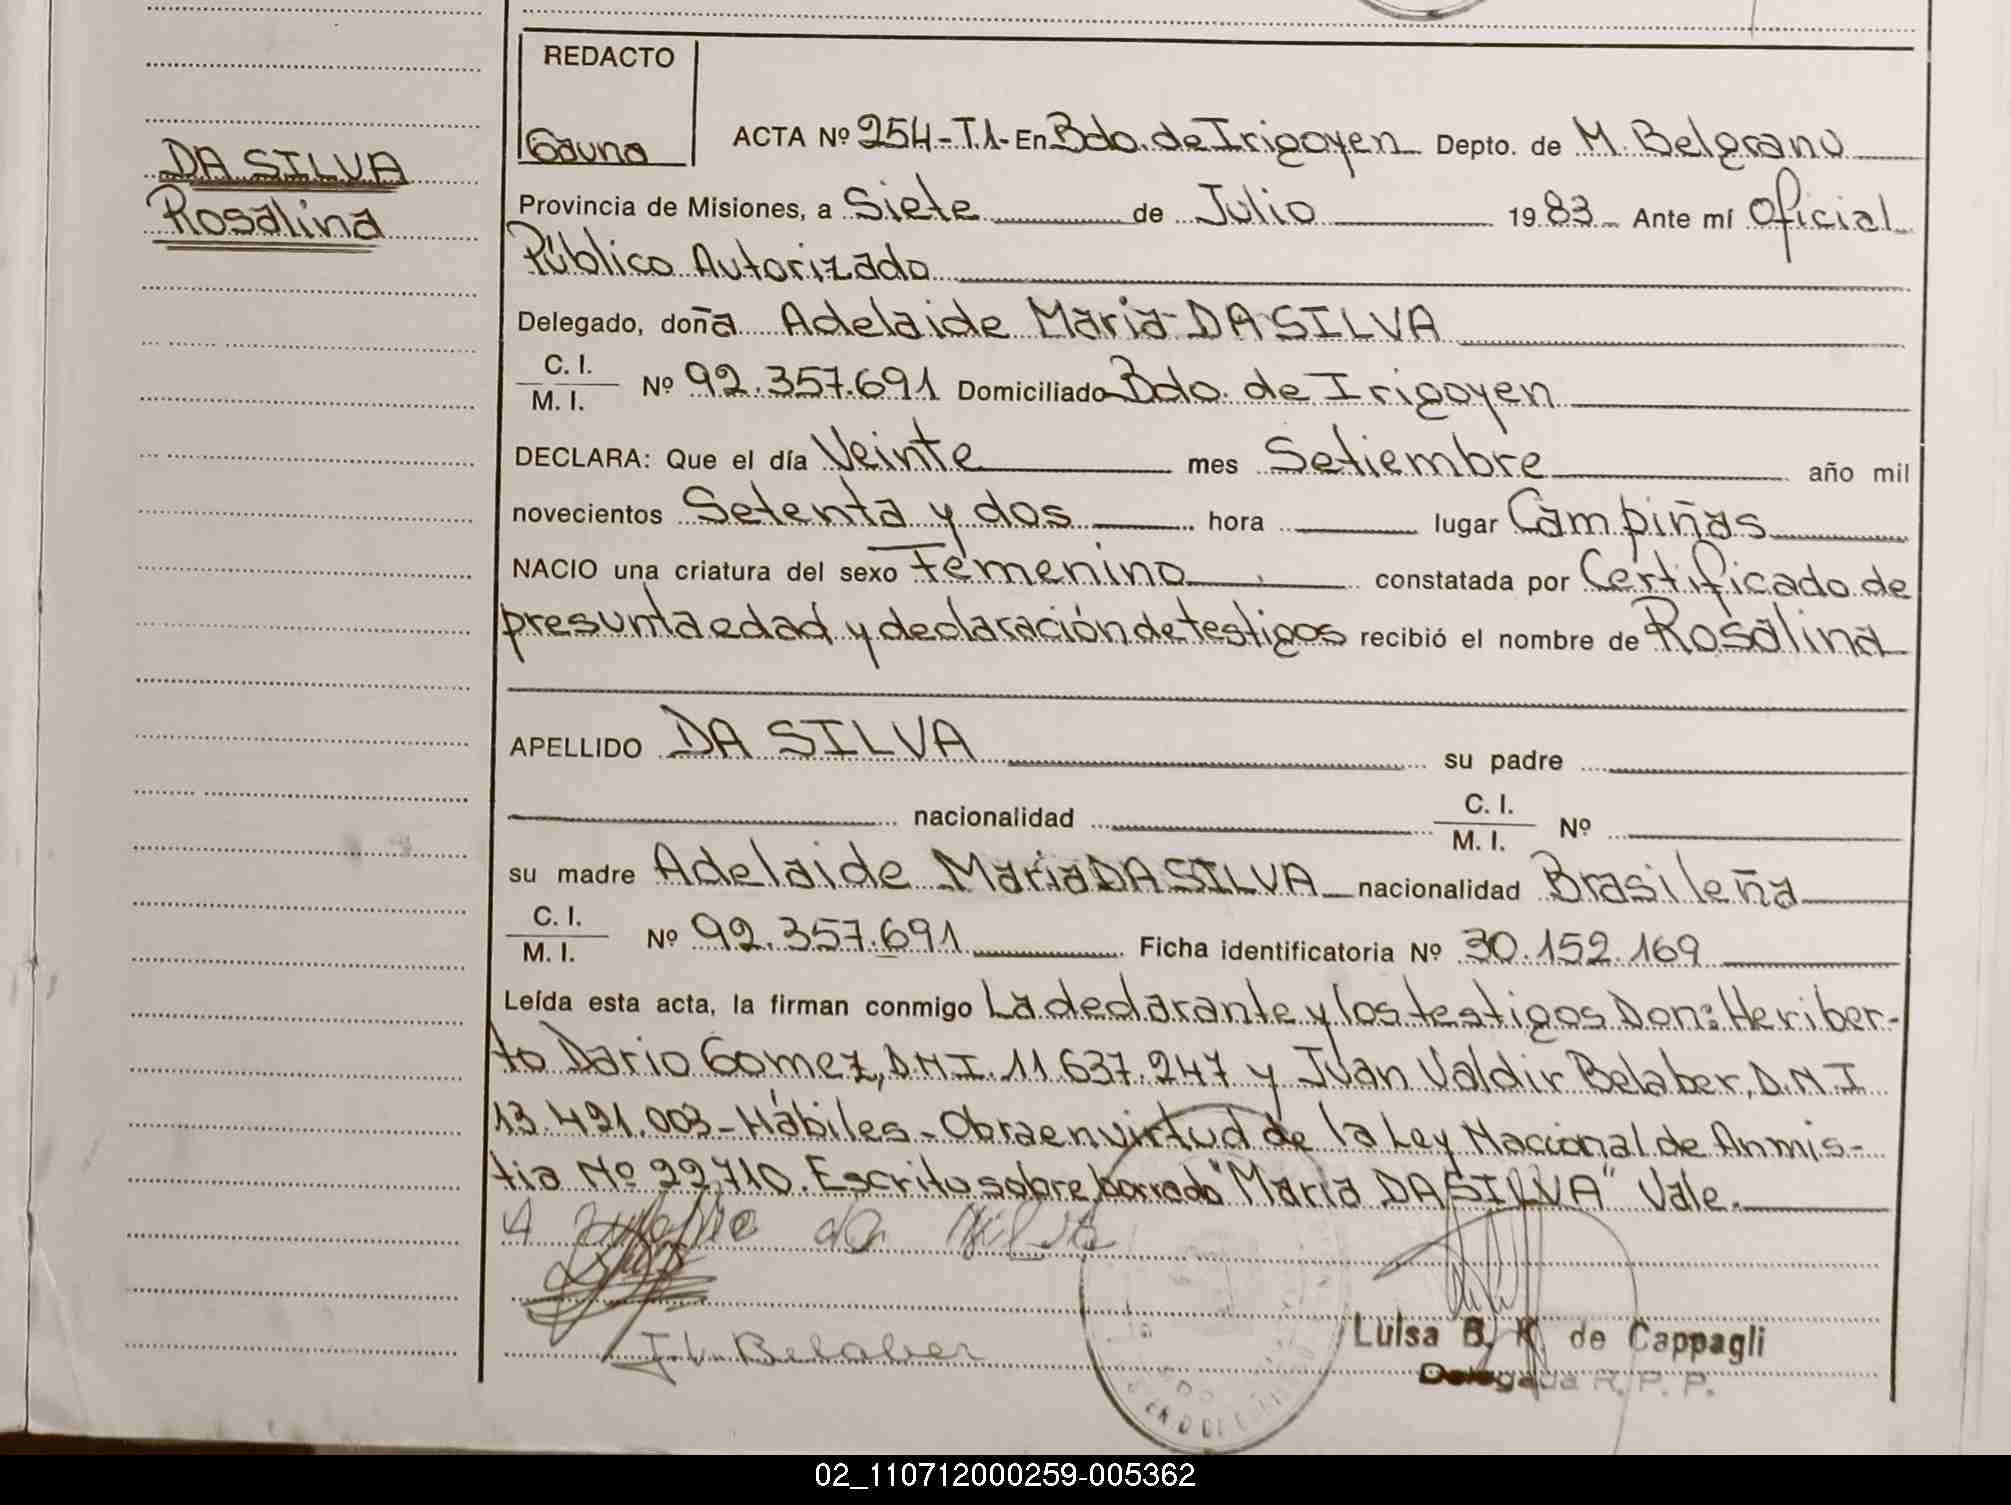 REDACTO
Gauna
DA SILVA
Rosalina
ACTA Nº 254-T.1- En Bdo. de Irigoyen Depto. de M. Belgrano
Provincia de Misiones, a Siete de Julio 1983 Ante mí Oficial
Público Autorizado
Delegado, doña Adelaide Maria DA SILVA
C. I.
M. I. Nº 92.357.691 Domiciliado Bdo. de Irigoyen
DECLARA: Que el día Veinte mes Setiembre año mil
novecientos Setenta y dos hora lugar Campiñas
NACIO una criatura del sexo Femenino constatada por Certificado de
presunta edad y declaración de testigos recibió el nombre de Rosalina
APELLIDO DA SILVA su padre
nacionalidad C. I.
M. I. Nº
su madre Adelaide Maria DA SILVA nacionalidad Brasileña
C. I.
M. I. Nº 92.357.691 Ficha identificatoria Nº 30.152.169
Leída esta acta, la firman conmigo La declarante y los testigos Don: Heriber-
to Dario Gomez, D.N.I. 11.637.247 y Juan Valdir Belaber, D.N.I
13.491.003- Hábiles - Obra en virtud de la Ley Nacional de Anmis-
tia Nº 22.710. Escrito sobre borrado "Maria DA SILVA" Vale.
da Silva
J. V. Belaber
Luisa B. K. de Cappagli
Delegada R. P. P.
02_110712000259-005362